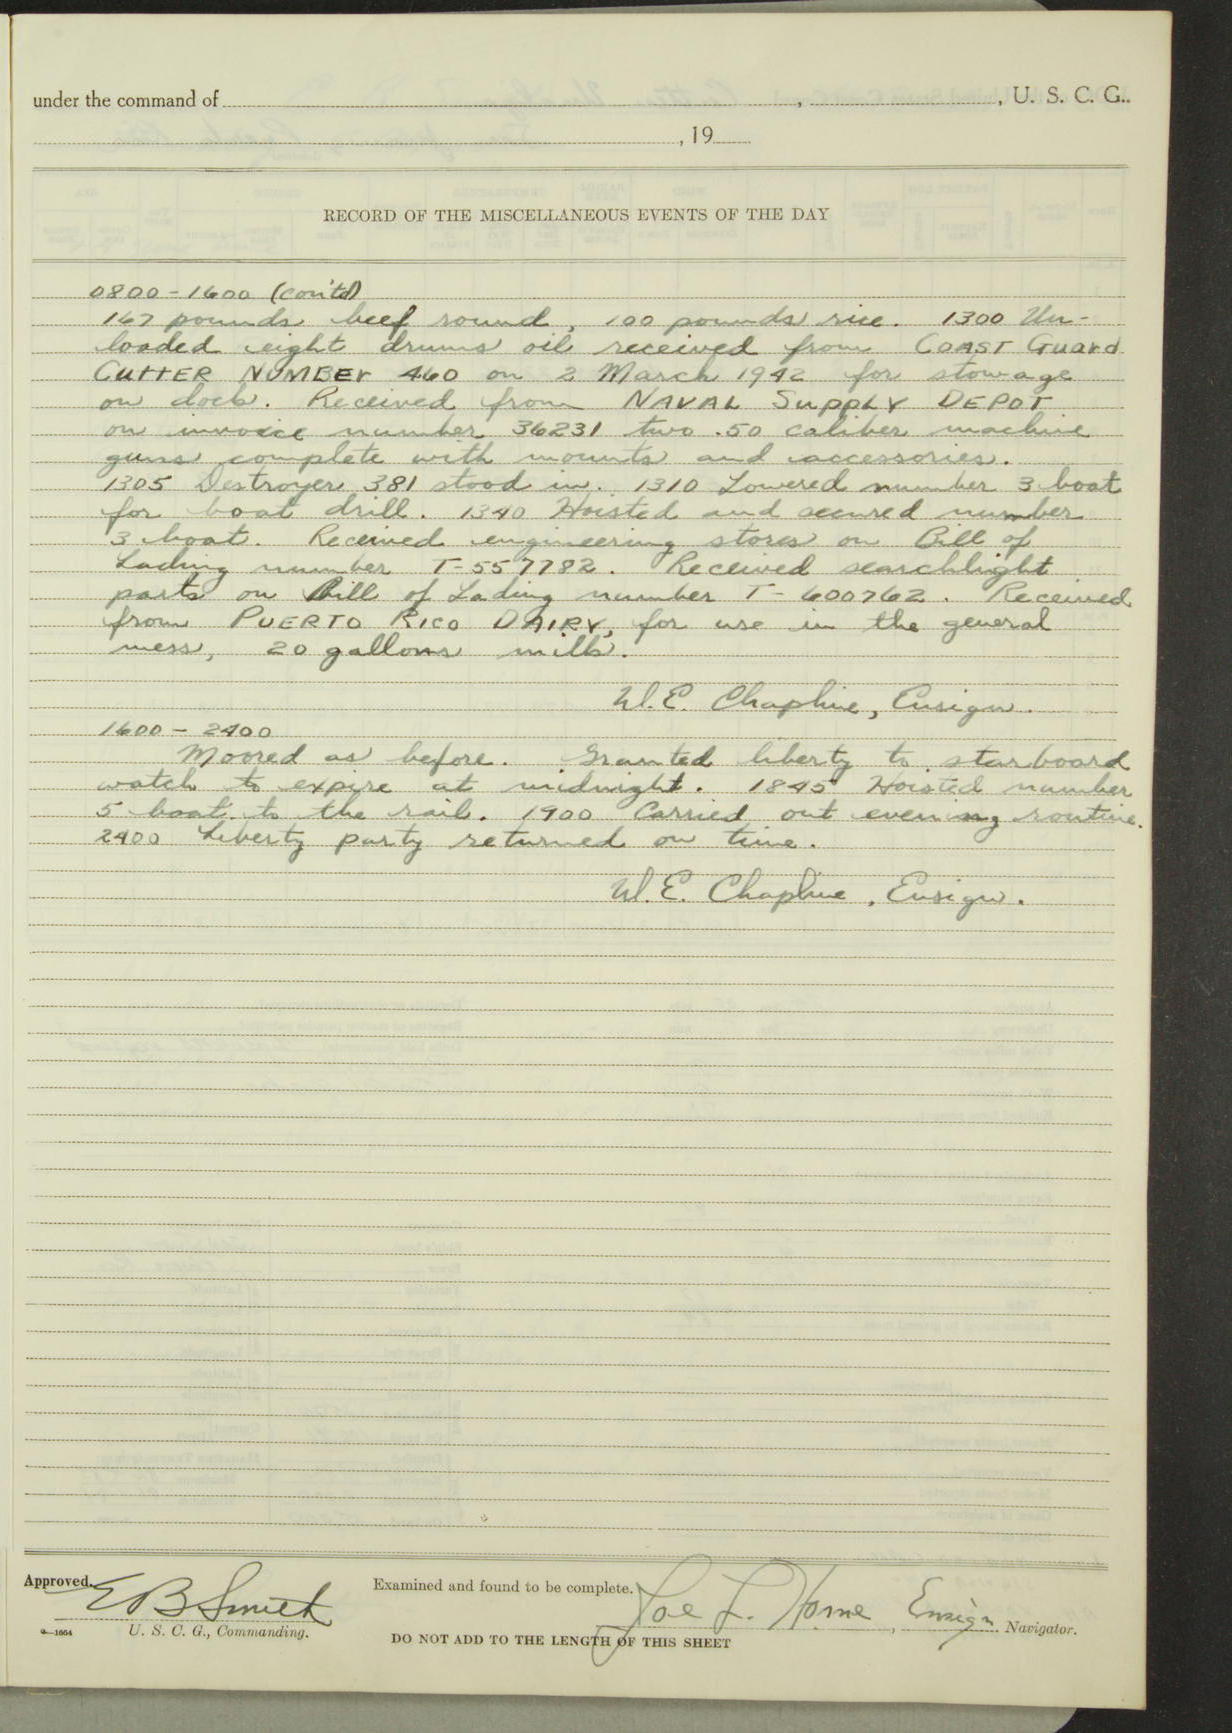 under the command of , , U. S. C. G..
, 19
RECORD OF THE MISCELLANEOUS EVENTS OF THE DAY
0800-1600 (con'td)
167 pounds beef round, 100 pounds rice. 1300 Un-
loaded eight drums oil received from COAST Guard
CUTTER NUMBER 460 on 2 March 1942 for stowage
on dock. Received from NAVAL SUPPLY DEPOT
on invoice number 36231 two .50 caliber machine
guns complete with mounts and accessories.
1305 Destroyer 381 stood in. 1310 Lowered number 3 boat
for boat drill. 1340 Hoisted and secured number
3 boat. Received engineering stores on Bill of
Lading number T-557782. Received searchlight
parts on Bill of Lading number T-600762. Received
from PUERTO RICO DAIRY, for use in the general
mess, 20 gallons milk.
W.E. Chapline, Ensign.
1600-2400
Moored as before. Granted liberty to starboard
watch to expire at midnight. 1845 Hoisted number
5 boat to the rail. 1900 Carried out evening routine.
2400 Liberty party returned on time.
W.E. Chapline, Ensign.
Approved. E B Smith
U. S. C. G., Commanding.
Examined and found to be complete. Joe L. Horne, Ensign Navigator.
DO NOT ADD TO THE LENGTH OF THIS SHEET